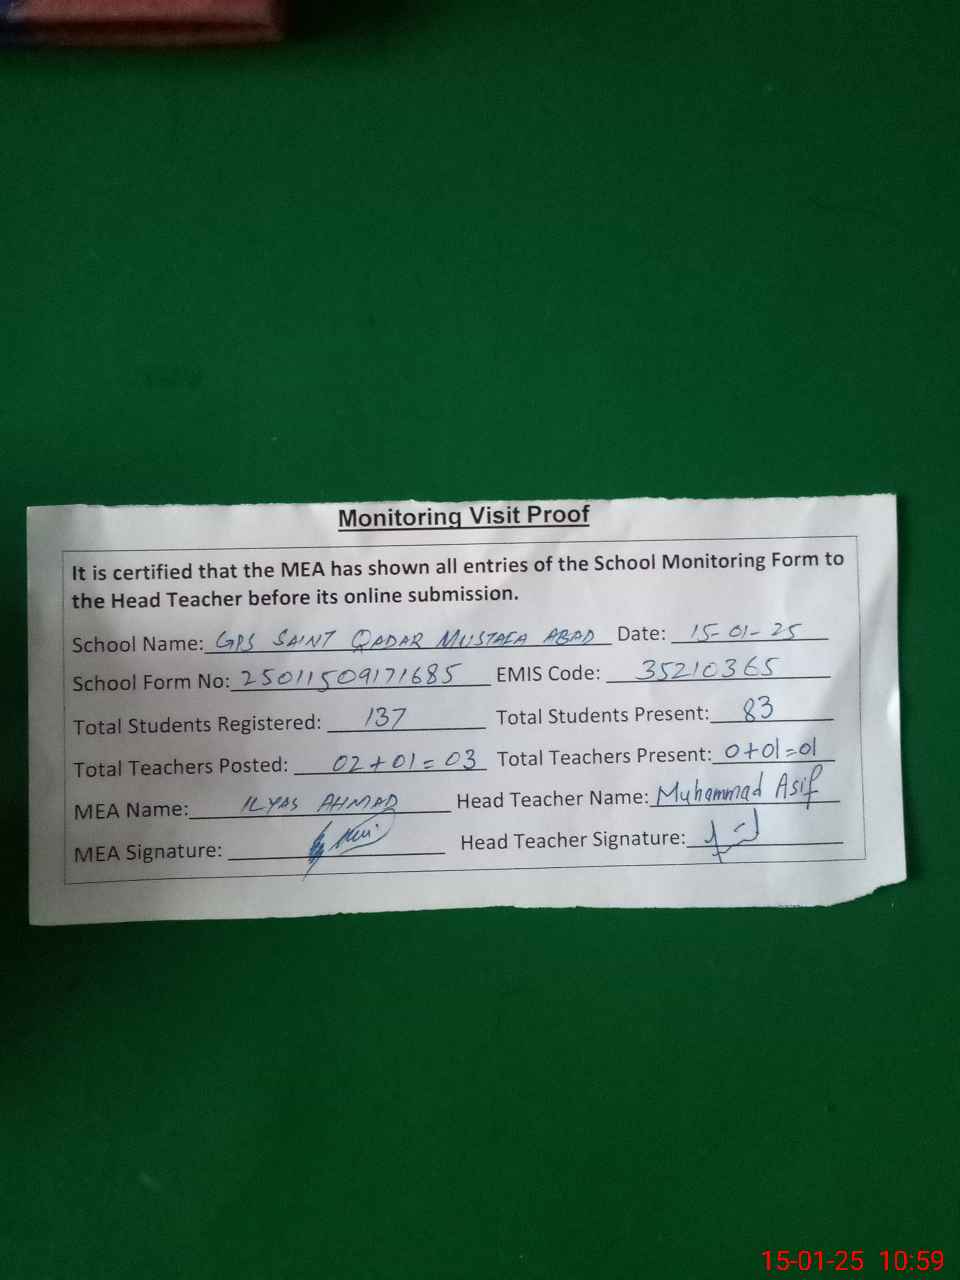 Monitoring Visit Proof
It is certified that the MEA has shown all entries of the School Monitoring Form to
the Head Teacher before its online submission.
School Name: GPS SAINT QADAR MUSTAFA ABAD Date: 15-01-25
School Form No: 25011509171685 EMIS Code: 35210365
Total Students Registered: 137 Total Students Present: 83
Total Teachers Posted: 02+01=03 Total Teachers Present: 0+01=01
MEA Name: ILYAS AHMAD Head Teacher Name: Muhammad Asif
MEA Signature: Head Teacher Signature:
15-01-25 10:59